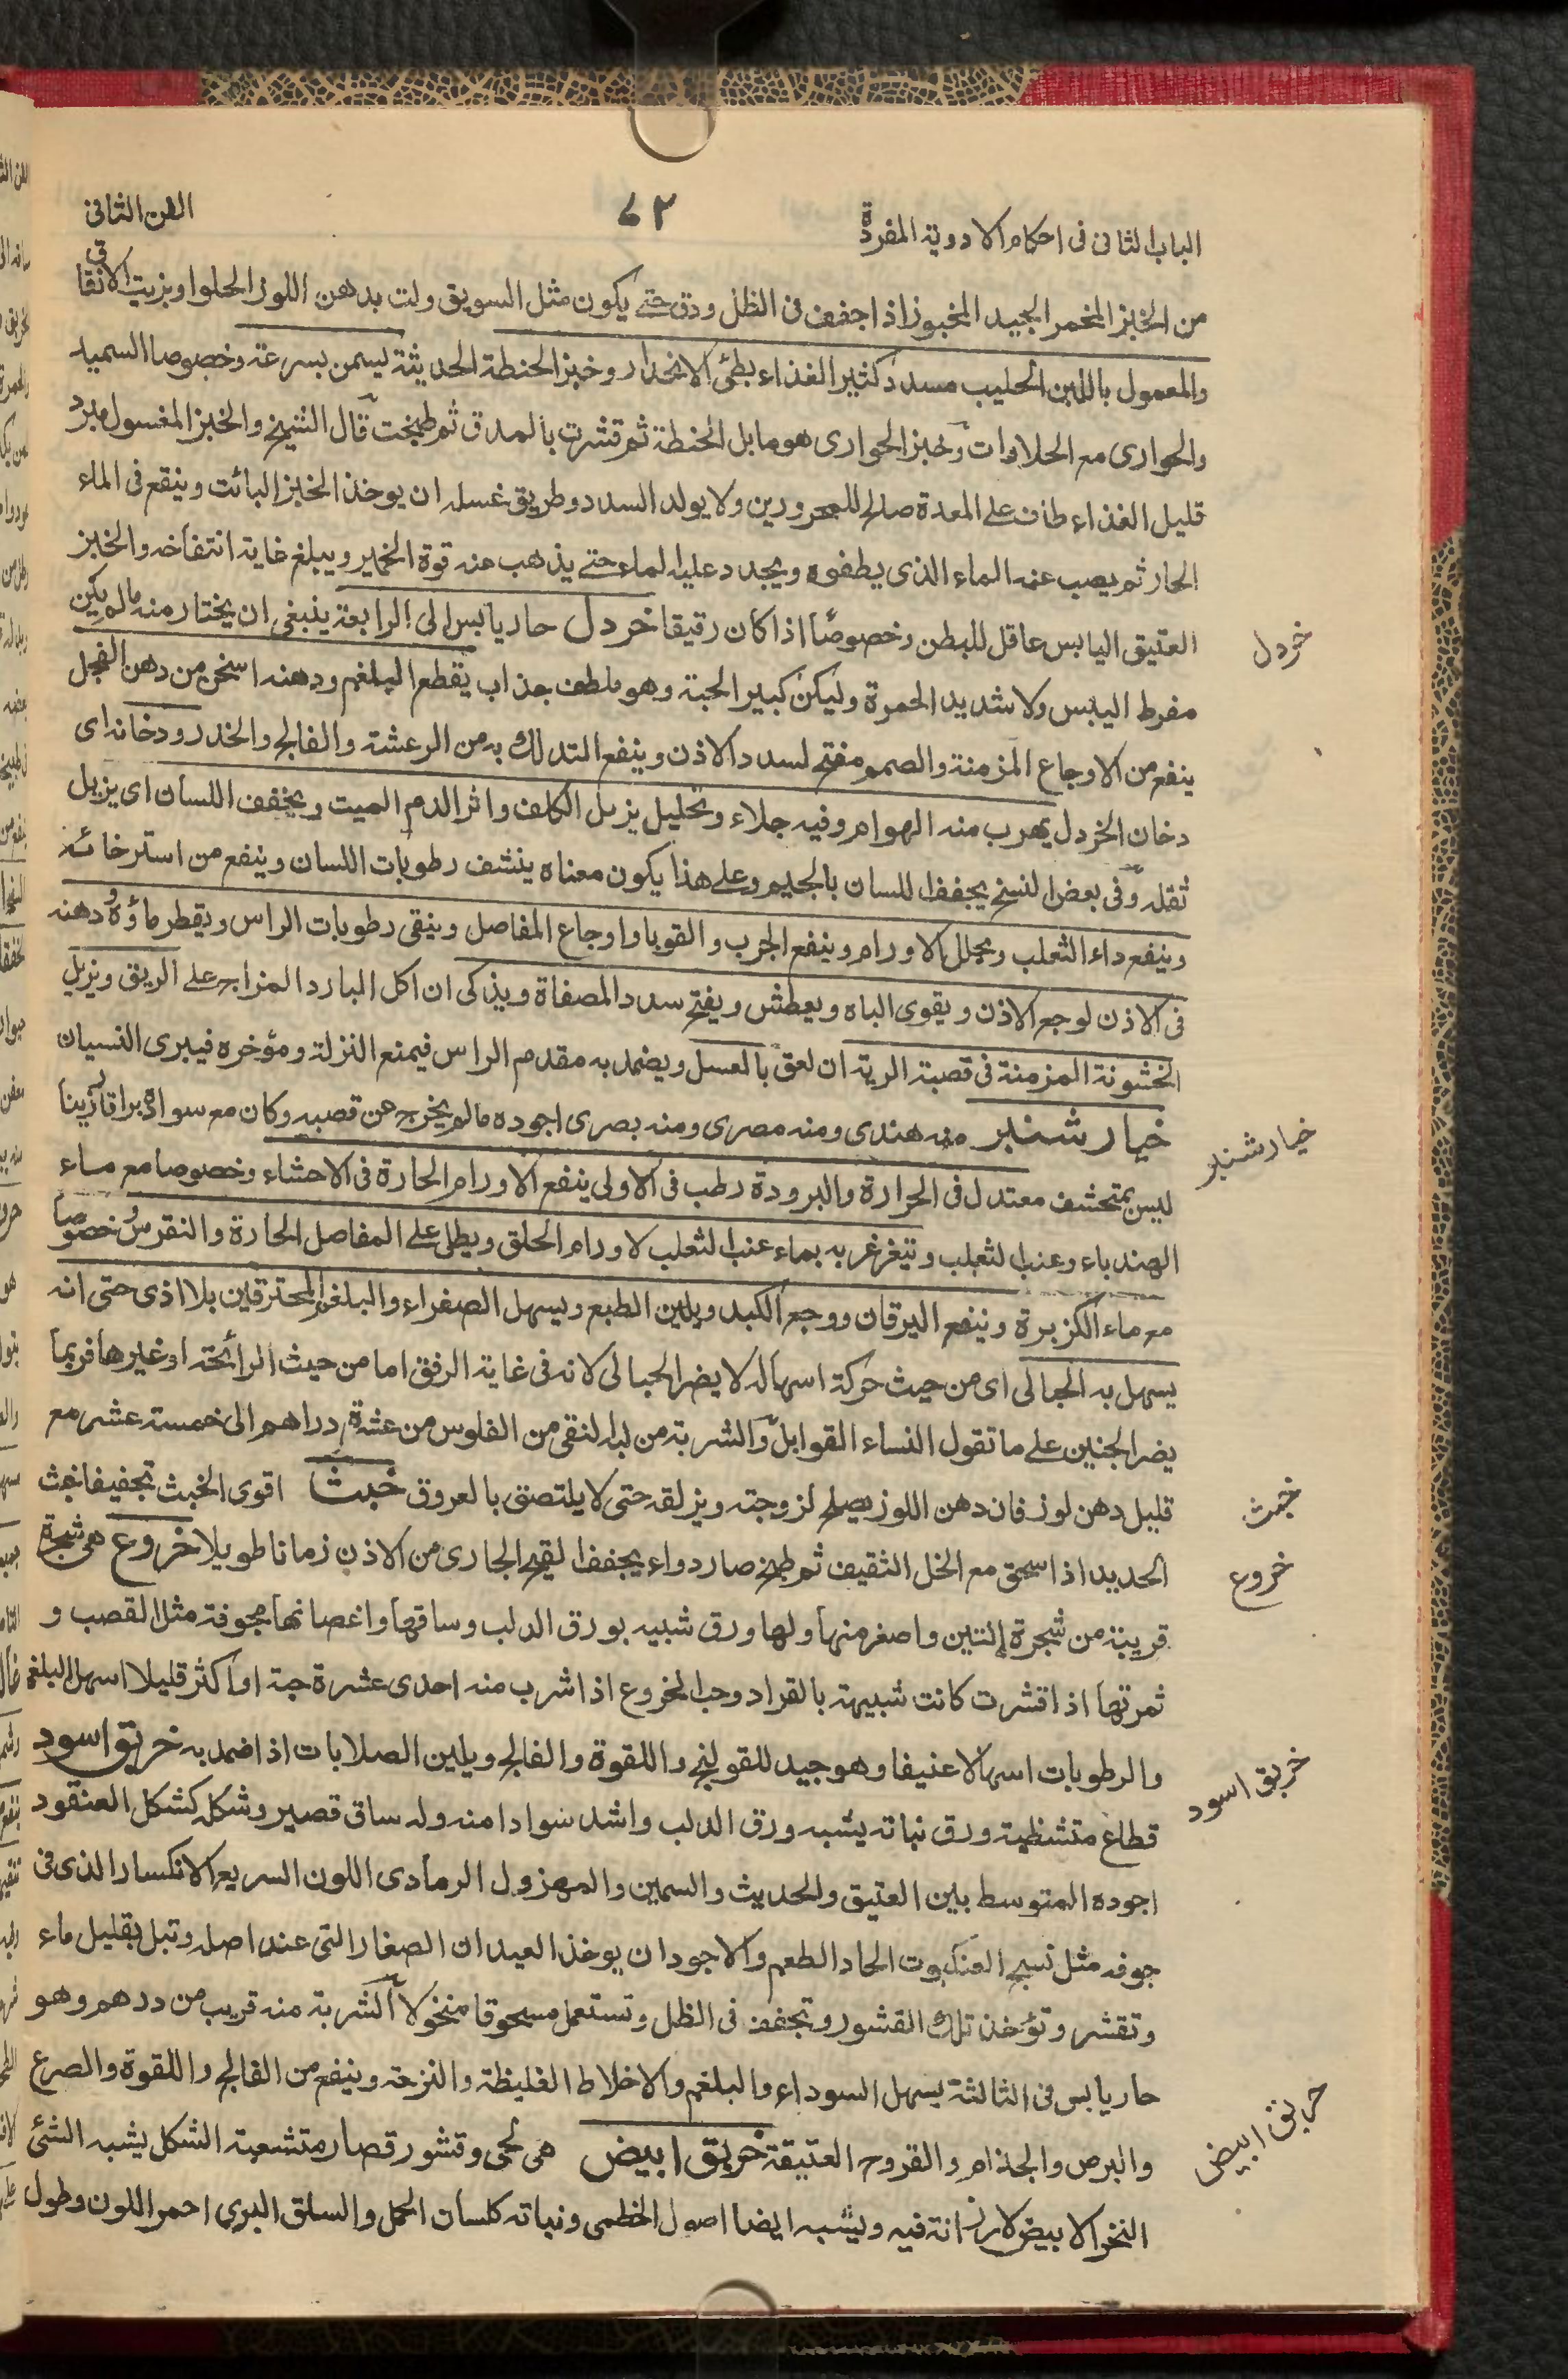 الباب الثانى فى احكام الادوية المفردة
٧٢
الفن الثانى
من الخبز المخمر الجيد المخبوز اذا جفف فى الظل ودق حتے يكون مثل السويق ولت بدهن اللوز الحلو او بزيت الانقاق
والمعمول باللبن الحليب مسدد كثير الغذاء بطئ الانحدار وخبز الحنطة الحديثة يسمن بسرعة وخصوصا السميد
والحوارى مع الحلاوات وخبز الحوارى هو ما بل الحنطة ثم قشرت بالمدق ثم طبخت قال الشيخ والخبز المغسول مبرد
قليل الغذاء طاف علے المعدة صالح للمحرورين ولا يولد السدد وطريق غسله ان يوخذ الخبز البائت وينقع فى الماء
الحار ثم يصب عنه الماء الذى يطفوه ويجدد عليه الماء حتے يذهب عنه قوة الخمير ويبلغ غاية انتفاخه والخبز
العتيق اليابس عاقل للبطن وخصوصًا اذا كان رقيقا خردل حار يابس الى الرابعة ينبغى ان يختار منه ما لم يكن
خردل
مفرط اليبس ولا شديد الحمرة وليكن كبير الحبة وهو ملطف جذاب يقطع البلغم ودهنه اسخن من دهن الفجل
ينفع من الاوجاع المزمنة والصمم مفتح لسدد الاذن وينفع التدلك به من الرعشة والفالج والخدر ودخانه اى
دخان الخردل يهرب منه الهوام وفيه جلاء وتحليل يزيل الكلف واثر الدم الميت ويخفف اللسان اى يزيل
ثقله وفى بعض النسخ يجفف اللسان بالجيم وعلے هذا يكون معناه ينشف رطوبات اللسان وينفع من استرخائه
وينفع داء الثعلب ويحلل الاورام وينفع الجرب والقوبا واوجاع المفاصل وينقى رطوبات الراس ويقطر ماؤه ودهنه
فى الاذن لوجع الاذن ويقوى الباه ويعطش ويفتح سدد المصفاة ويذكى ان اكل البارد المزاج علے الريق ويزيل
الخشونة المزمنة فى قصبة الرية ان لعق بالعسل ويضمد به مقدم الراس فيمنع النزلة ومؤخره فيبرى النسيان
خيار شنبر منه هندى ومنه مصرى ومنه بصرى اجوده ما لم يخرج عن قصبه وكان مع سواده براقا رزينا
خيار شنبر
ليس بمتحشف معتدل فى الحرارة والبرودة رطب فى الاولى ينفع الاورام الحارة فى الاحشاء وخصوصا مع ماء
الهندباء وعنب الثعلب ويتغرغر به بماء عنب الثعلب لاورام الحلق ويطلى علے المفاصل الحارة والنقرس وخصوصًا
مع ماء الكزبرة وينفع اليرقان ووجع الكبد ويلين الطبع ويسهل الصفراء والبلغم المحترقين بلا اذى حتى انه
يسهل به الحبالى اى من حيث حركة اسهاله لا يضر الحبالى لانه فى غاية الرفق اما من حيث الرائحة او غيرها فربما
يضر الجنين علے ما تقول النساء القوابل والشربة من لبه النقى من الفلوس من عشرة دراهم الى خمسة عشر مع
قليل دهن لوز فان دهن اللوز يصلح لزوجته ويزلقه حتى لا يلتصق بالعروق خبث اقوى الخبث تجفيفا خبث
خبث
الحديد اذا سحق مع الخل الثقيف ثم طبخ صار دواء يجفف القيح الجارى من الاذن زمانا طويلا خروع هى شجرة
خروع
قريبة من شجرة التين واصغر منها ولها ورق شبيه بورق الدلب وساقها واغصانها مجوفة مثل القصب و
ثمرتها اذا قشرت كانت شبيهة بالقراد وحب الخروع اذا شرب منه احدى عشرة حبة او اكثر قليلا اسهل البلغم
والرطوبات اسهالا عنيفا وهو جيد للقولنج واللقوة والفالج ويلين الصلابات اذا ضمد به خربق اسود
خربق اسود
قطاع متشظية ورق نباته يشبه ورق الدلب واشد سوادا منه وله ساق قصير وشكله كشكل العنقود
اجوده المتوسط بين العتيق والحديث والسمين والمهزول الرمادى اللون السريع الانكسار الذى فى
جوفه مثل نسج العنكبوت الحاد الطعم والاجود ان يوخذ العيدان الصغار التى عند اصله وتبل بقليل ماء
وتقشر وتؤخذ تلك القشور وتجفف فى الظل وتستعمل مسحوقا منخولا الشربة منه قريب من درهم وهو
حار يابس فى الثالثة يسهل السوداء والبلغم والاخلاط الغليظة واللزجة وينفع من الفالج واللقوة والصرع
والبرص والجذام والقروح العتيقة خربق ابيض هى لحى وقشور قصار متشعبة الشكل يشبه الشئ
خربق ابيض
النخر الابيض لا رزانة فيه ويشبه ايضا اصول الخطمى ونباته كلسان الحمل والسلق البرى احمر اللون وطول